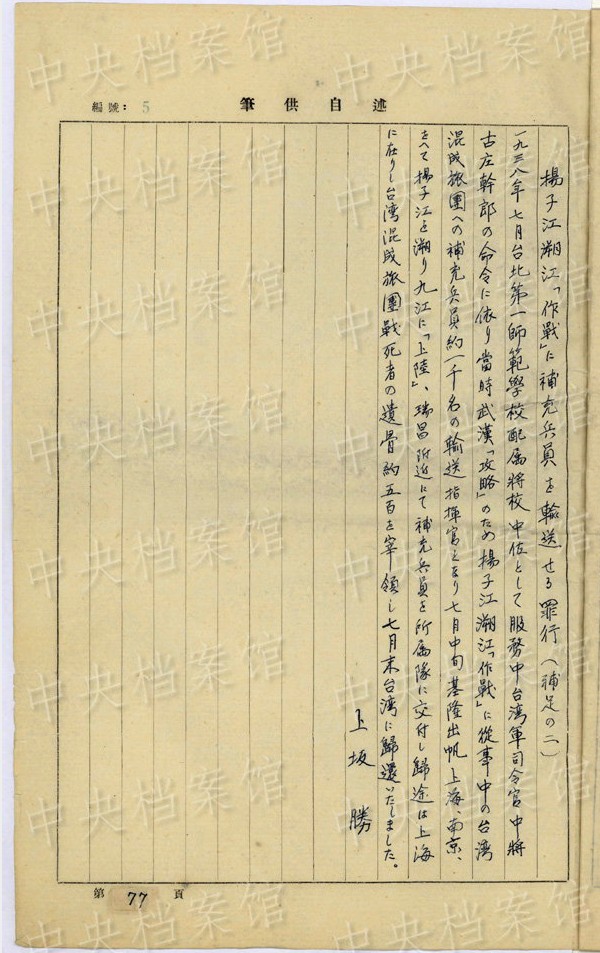 編號: 5
筆供自述
揚子江溯江「作戰」に補充兵員を輸送せる罪行（補足の二）
一九三八年七月台北第一師範學校配属将校中佐として服務中台湾軍司令官中將
古庄幹郎の命令に依り當時武漢「攻略」のため揚子江溯江「作戰」に從事中の台湾
混成旅團への補充兵員約一千名の輸送指揮官となり七月中旬基隆出帆上海、南京、
をへて揚子江を溯り九江に「上陸」、瑞昌附近にて補充兵員を所属隊に交付し歸途は上海
に在りし台湾混成旅團戰死者の遺骨約五百を宰領し七月末台湾に歸還いたしました。
上坂勝
第 77 頁
中央档案馆